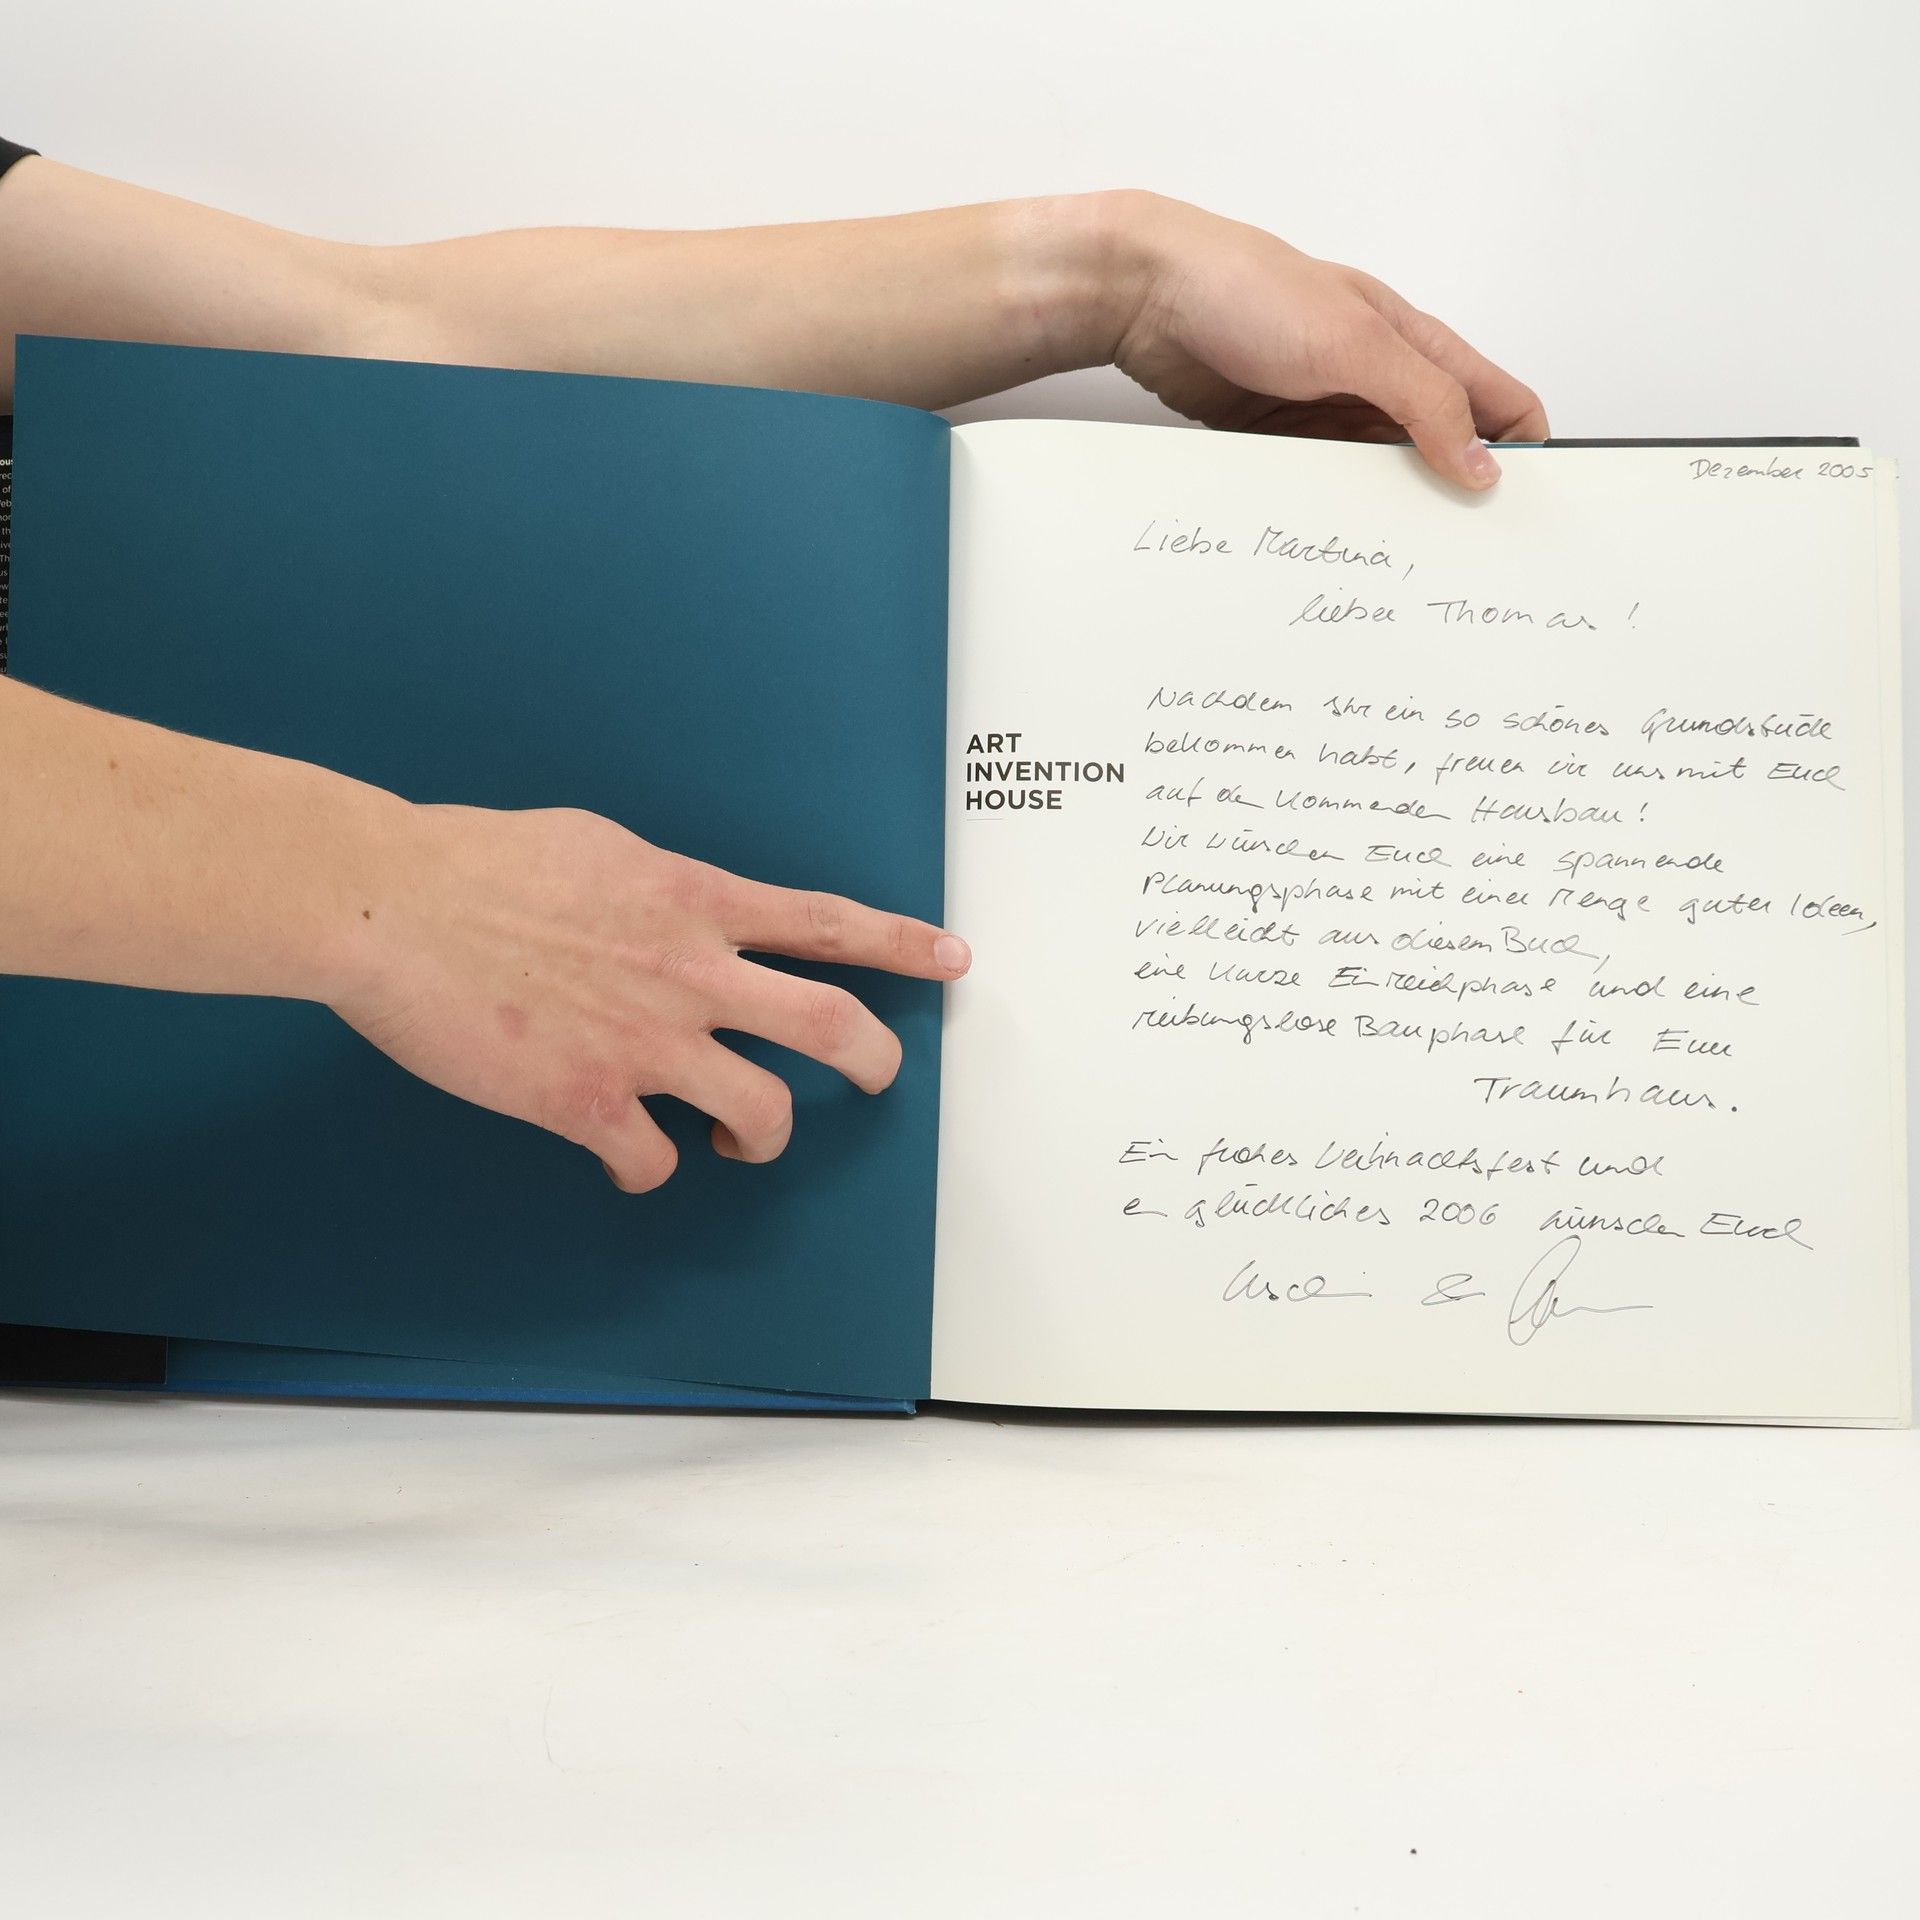 Dezember 2005
Liebe Martina,
lieber Thomas!
ART
INVENTION
HOUSE
Nachdem Ihr ein so schönes Grundstück
bekommen habt, freuen wir uns mit Euch
auf den kommenden Hausbau!
Wir wünschen Euch eine spannende
Planungsphase mit einer Menge guter Ideen,
vielleicht aus diesem Buch,
eine kurze Einreichphase und eine
reibungslose Bauphase für Euer
Traumhaus.
Ein frohes Weihnachtsfest und
ein glückliches 2006 wünschen Euch
&